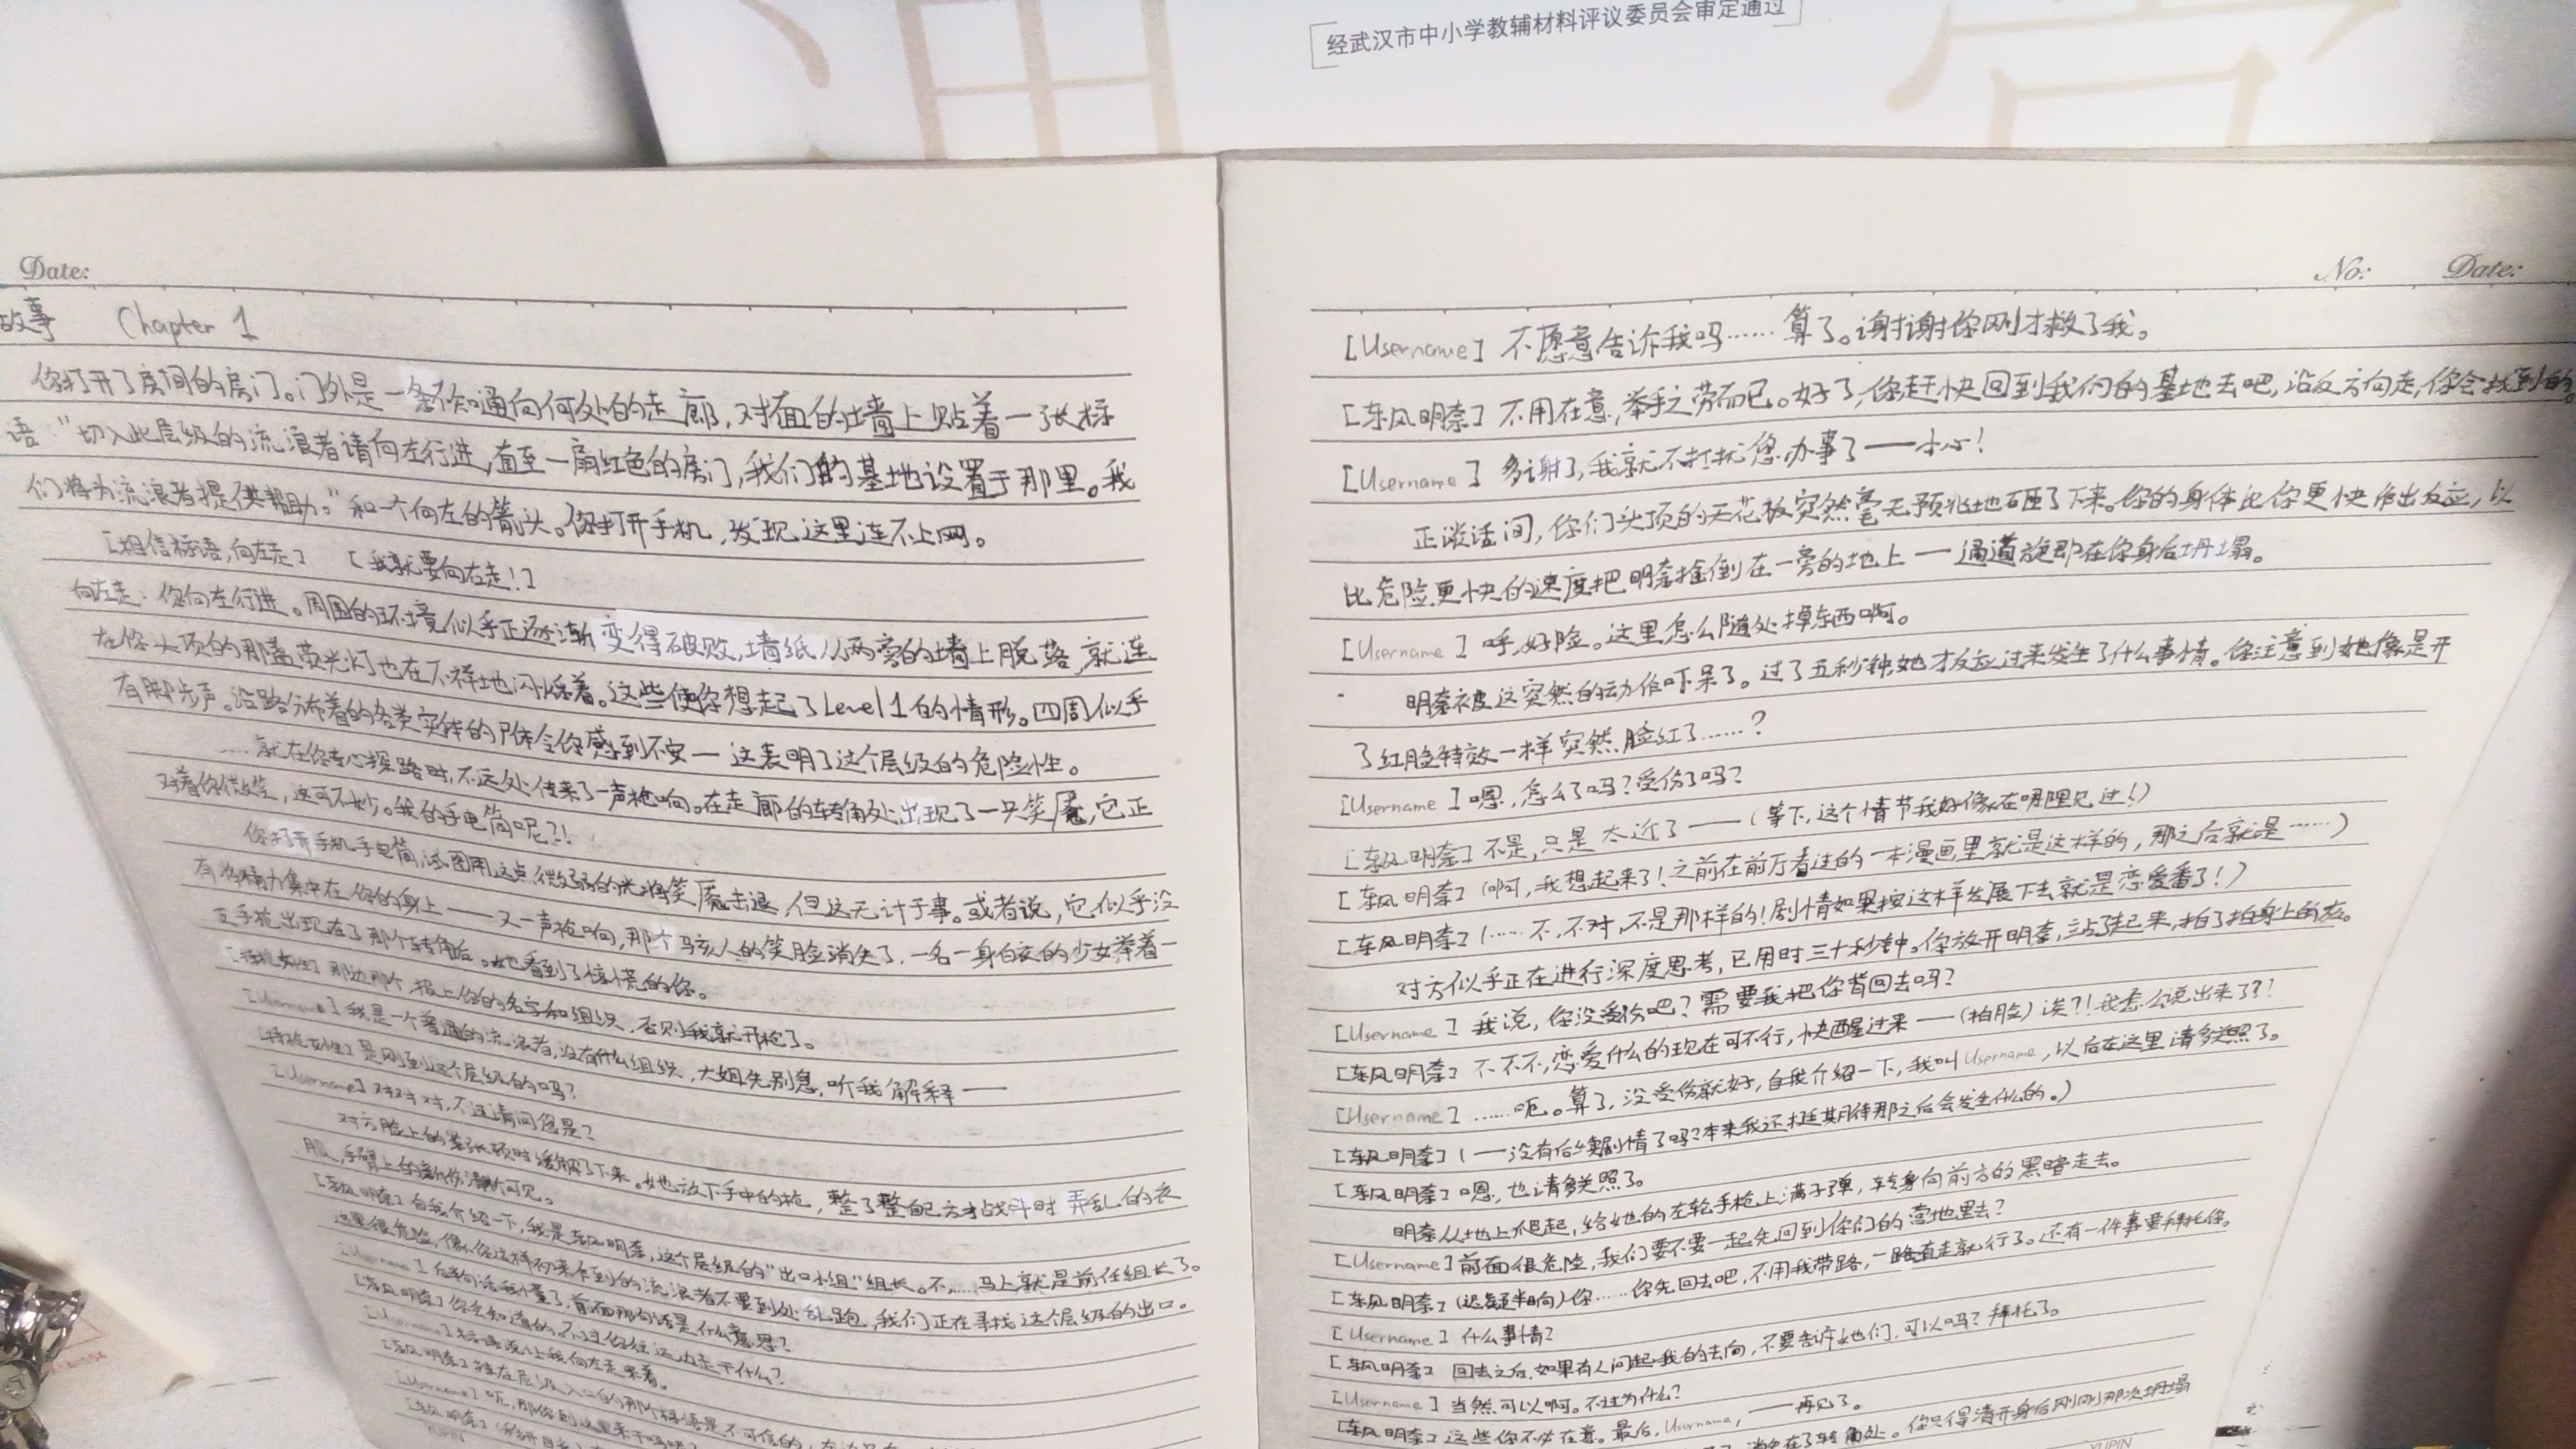 经武汉市中小学教辅材料评议委员会审定通过
Date:
故事 Chapter 1
你打开了房间的房门。门外是一条不知通向何处的走廊,对面的墙上贴着一张标
语:"切入此层级的流浪者请向左行进,直至一扇红色的房门,我们的基地设置于那里。我
们将为流浪者提供帮助。"和一个向左的箭头。你打开手机,发现这里连不上网。
[相信标语,向左走] [我就要向右走!]
向左走:你向左行进。周围的环境似乎正逐渐变得破败,墙纸从两旁的墙上脱落,就连
在你头顶的那盏荧光灯也在不祥地闪烁着。这些使你想起了Level 1的情形。四周似乎
有脚步声。沿路分布着的各类实体的尸体令你感到不安——这表明了这个层级的危险性。
……就在你专心探路时,不远处传来了一声枪响。在走廊的转角处出现了一只笑魇,它正
对着你微笑,这可不妙。我的手电筒呢?!
你打开手机手电筒,试图用这点微弱的光将笑魇击退,但这无计于事。或者说,它似乎没
有将精力集中在你的身上——又一声枪响,那个骇人的笑脸消失了,一名一身白衣的少女举着一
支手枪出现在了那个转角后。她看到了惊慌的你。
[持枪女性] 那边那个,报上你的名字和组织,否则我就开枪了。
[Username] 我是一个普通的流浪者,没有什么组织,大姐先别急,听我解释——
[持枪女性] 是刚到这个层级的吗?
[Username] 对对对,不过请问您是?
对方脸上的紧张顿时缓解了下来。她放下手中的枪,整了整自己方才战斗时弄乱的衣
服,手臂上的新伤清晰可见。
[东风明奈] 自我介绍一下,我是东风明奈,这个层级的"出口小组"组长。不……马上就是前任组长了。
这里很危险,像你这样初来乍到的流浪者不要到处乱跑,我们正在寻找这个层级的出口。
[Username] 后半句话我懂了,前面那句话是什么意思?
[东风明奈] 你会知道的,不过你往这边走干什么?
[Username] 标语说让我向左走来着。
[东风明奈] 挂在层级入口的那个标语是不可信的,
[Username] 呃,那你到这里来干吗呢?
[东风明奈] (移开目光)
YUPIN
No: Date:
[Username] 不愿意告诉我吗……算了。谢谢你刚才救了我。
[东风明奈] 不用在意,举手之劳而已。好了,你赶快回到我们的基地去吧,沿反方向走,你会找到的。
[Username] 多谢了,我就不打扰您办事了——小心!
正谈话间,你们头顶的天花板突然毫无预兆地砸了下来。你的身体比你更快作出反应,以
比危险更快的速度把明奈推倒在一旁的地上——通道旋即在你身后坍塌。
[Username] 呼,好险。这里怎么随处掉东西啊。
明奈被这突然的动作吓呆了。过了五秒钟她才反应过来发生了什么事情。你注意到她像是开
了红脸特效一样突然脸红了……?
[Username] 嗯,怎么了吗?受伤了吗?
[东风明奈] 不是,只是太近了——(等下,这个情节我好像在哪里见过!)
[东风明奈] (啊,我想起来了!之前在前厅看过的一本漫画里就是这样的,那之后就是……)
[东风明奈] (……不,不对,不是那样的!剧情如果按这样发展下去就是恋爱番了!)
对方似乎正在进行深度思考,已用时三十秒钟。你放开明奈,站了起来,拍了拍身上的灰。
[Username] 我说,你没受伤吧?需要我把你背回去吗?
[东风明奈] 不不不,恋爱什么的现在可不行,快醒过来——(拍脸)诶?!我怎么说出来了?!
[Username] ……呃。算了,没受伤就好,自我介绍一下,我叫Username,以后在这里请多关照了。
[东风明奈] (——没有后续剧情了吗?本来我还挺期待那之后会发生什么的。)
[东风明奈] 嗯,也请多关照了。
明奈从地上爬起,给她的左轮手枪上满子弹,转身向前方的黑暗走去。
[Username] 前面很危险,我们要不要一起先回到你们的营地里去?
[东风明奈] (迟疑半晌)你……你先回去吧,不用我带路,一路直走就行了。还有一件事要拜托你。
[Username] 什么事情?
[东风明奈] 回去之后,如果有人问起我的去向,不要告诉她们,可以吗?拜托了。
[Username] 当然可以啊。不过为什么?
[东风明奈] 这些你不必在意。最后,Username,——再见了。
消失在了转角处。你只得清开身后刚刚那次坍塌
YUPIN